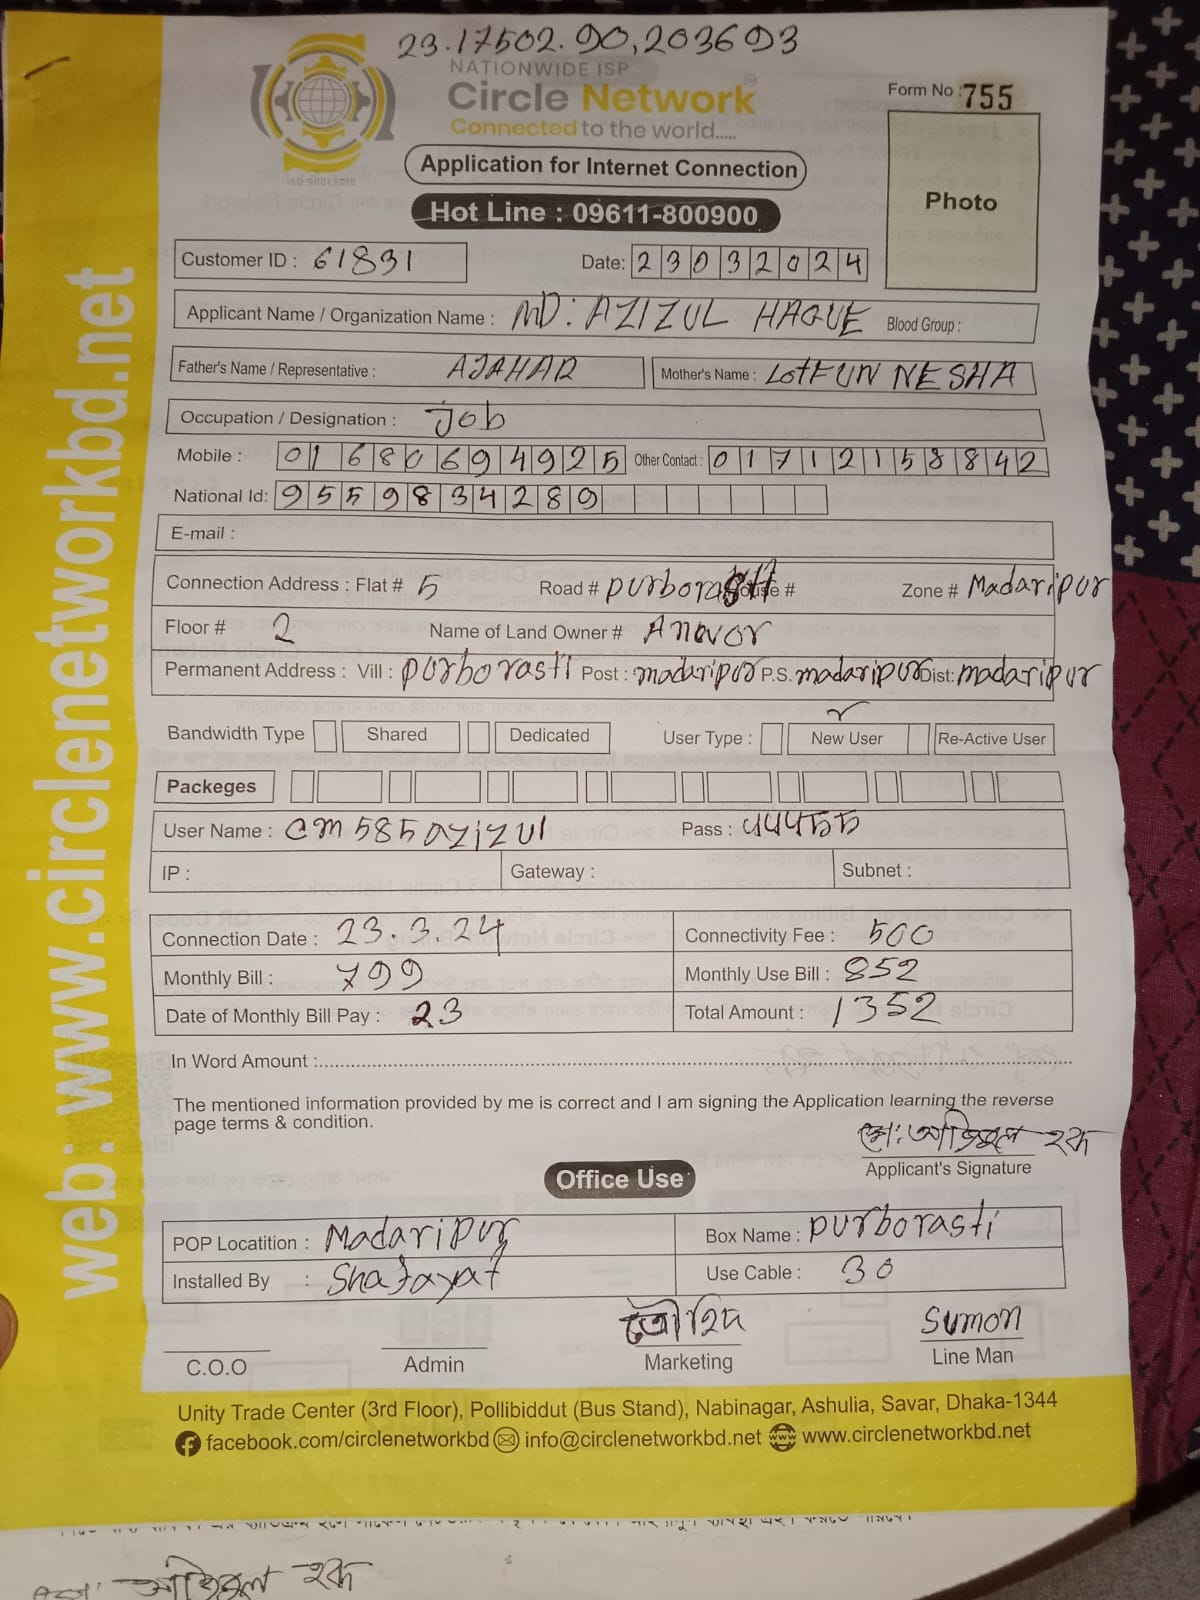 23.17502.90,203693
NATIONWIDE ISP
Circle Network
Connected to the world.....
ISO 9001:2015
Form No : 755
Application for Internet Connection
Photo
Hot Line : 09611-800900
Customer ID : 61831 Date: 23032024
Applicant Name / Organization Name : MD: AZIZUL HAQUE Blood Group :
Father's Name / Representative : AJAHAR Mother's Name : LOTFUN NESHA
Occupation / Designation : Job
Mobile : 01680694925 Other Contact : 01712158842
National Id: 9559834289
E-mail :
Connection Address : Flat # 5 Road # purborasti House # Zone # Madaripur
Floor # 2 Name of Land Owner # Anovor
Permanent Address : Vill : purborasti Post : madaripur P.S. madaripur Dist: madaripur
Bandwidth Type Shared Dedicated User Type : New User Re-Active User
Packeges
User Name : cm585azizul Pass :
IP : Gateway : Subnet :
Connection Date : 23.3.24 Connectivity Fee : 500
Monthly Bill : 799 Monthly Use Bill : 852
Date of Monthly Bill Pay : 23 Total Amount : 1352
In Word Amount :
The mentioned information provided by me is correct and I am signing the Application learning the reverse
page terms & condition.
মো: আজিজুল হক
Applicant's Signature
Office Use
POP Locatition : Madaripur Box Name : purborasti
Installed By : Shafayat Use Cable : 30
তৌহিদ Sumon
C.O.O Admin Marketing Line Man
Unity Trade Center (3rd Floor), Pollibiddut (Bus Stand), Nabinagar, Ashulia, Savar, Dhaka-1344
facebook.com/circlenetworkbd info@circlenetworkbd.net www.circlenetworkbd.net
web: www.circlenetworkbd.net
মো: আজিজুল হক